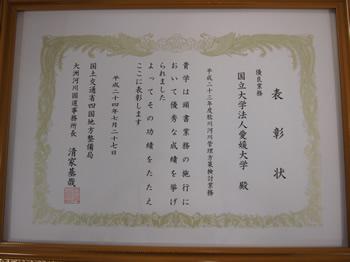 表彰状
優良業務
国立大学法人愛媛大学 殿
平成二十三年度肱川河川管理方策検討業務
貴学は頭書業務の施行に
おいて優秀な成績を挙げ
られました
よってその功績をたたえ
ここに表彰します
平成二十四年七月二十七日
国土交通省四国地方整備局
大洲河川国道事務所長 清家基哉